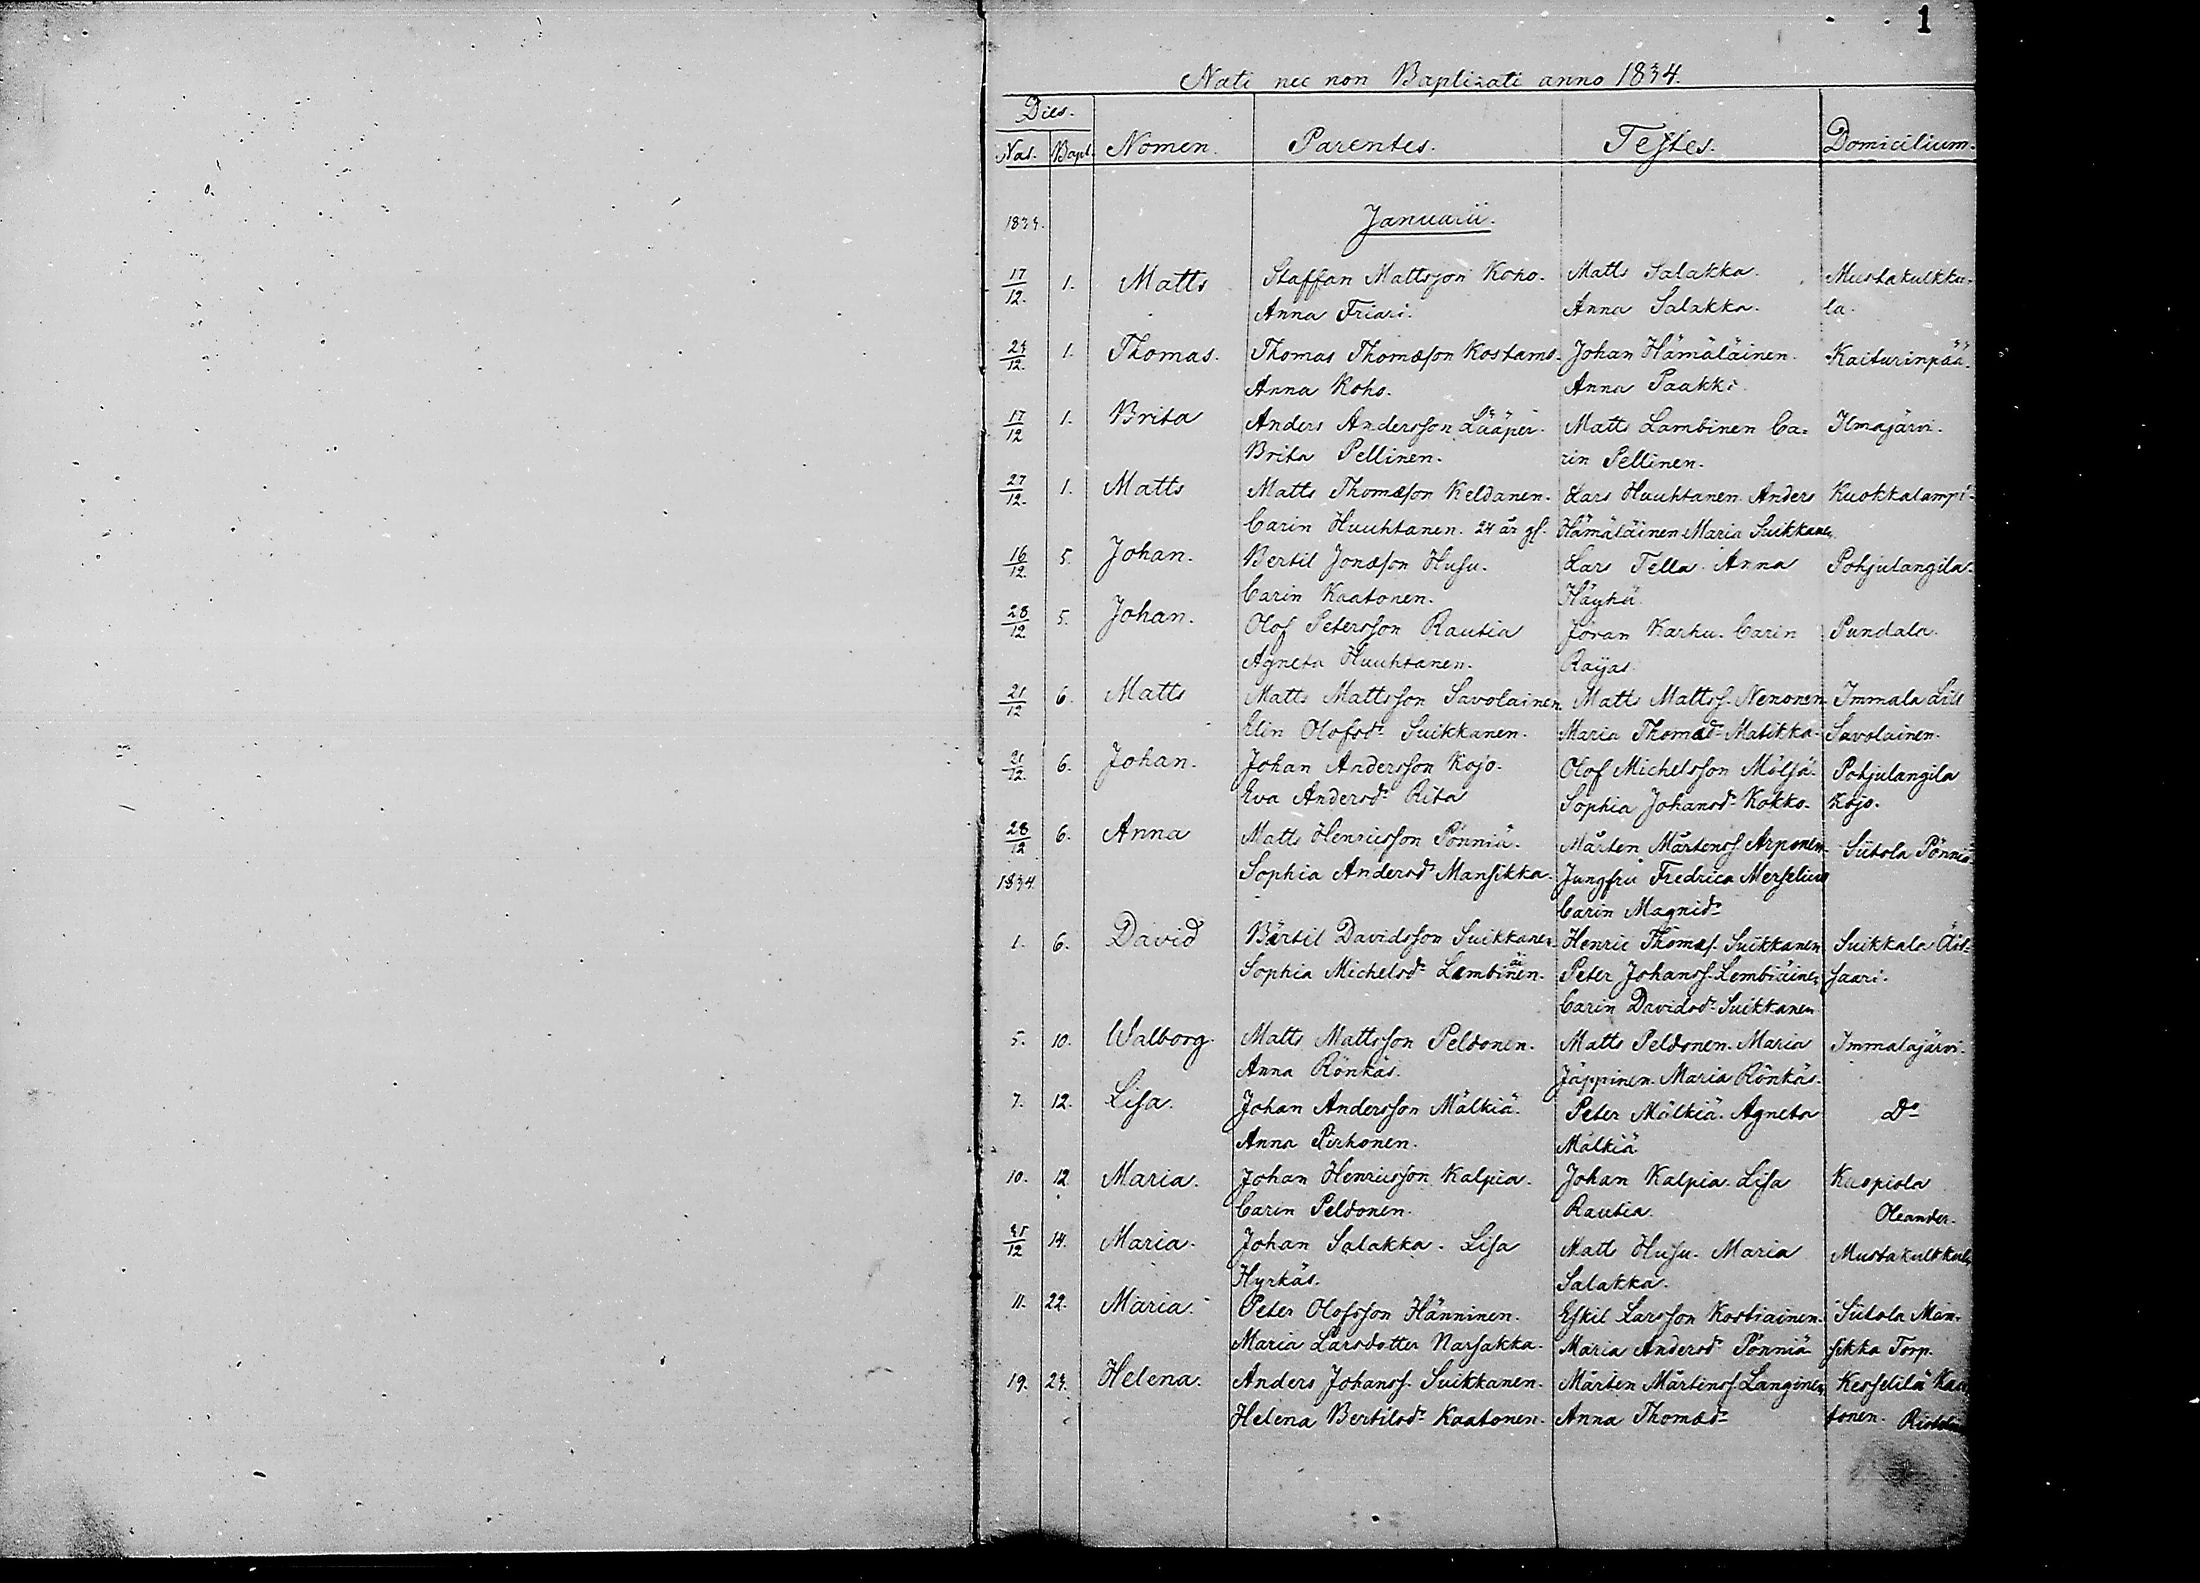 1
Nati nec non Baptizati anno 1834.
Dies.
Nat. Bapt. Nomen. Parentes. Testes. Domicilium.
1833. Januarii.
17/12. 1. Matts Staffan Mattsson Koho. Matts Salakka. Mustakulkku-
Anna Friari. Anna Salakka. la.
24/12. 1. Thomas. Thomas Thomæson Kostamo. Johan Hämäläinen. Kaiturinpää.
Anna Koho. Anna Paakki
17/12 1. Brita Anders Andersson Lääperi. Matts Lambinen Ca= Ilmajärvi.
Brita Pellinen. rin Pellinen.
27/12. 1. Matts Matts Thomæson Keldanen. Lars Huuhtanen. Anders Kuokkalampi.
Carin Huuhtanen. 24 år gl. Hämäläinen. Maria Suikkanen
16/12. 5. Johan. Bertil Jonæson Husu. Lars Tella. Anna Pohjulangila.
Carin Kaatonen. Häyhä.
28/12 5. Johan. Olof Petersson Rautia Jöran Karhu. Carin Pundala.
Agneta Huuhtanen. Rajas.
21/12 6. Matts Matts Mattsson Savolainen Matts Mattss. Nenonen Immala Lill
Elin Olofsd:r Suikkanen. Maria Thomæd:r Matikka. Savolainen.
21/12. 6. Johan. Johan Andersson Kojo. Olof Michelsson Möljä. Pohjulangila
Eva Andersd:r Rita Sophia Johansd:r Kokko. Kojo.
28/12 6. Anna Matts Henricsson Pönniä. Mårten Mårtenss. Arponen. Siitola Pönniä.
1834. Sophia Andersd:r Mansikka. Jungfru Fredrica Merselius
Carin Magnid:r
1. 6. David Bertil Davidsson Suikkanen. Henric Thomæs. Suikkanen Suikkala
Sophia Michelsd:r Lembinen. Peter Johanss. Lembiäinen saari.
Carin Davidsd:r Suikkanen
5. 10. Walborg. Matts Mattsson Peldonen. Matts Peldonen. Maria Immalajärvi.
Anna Rönkäs. Jäppinen. Maria Rönkäs.
7. 12. Lisa. Johan Andersson Mälkiä. Peter Mälkiä. Agneta D:o
Anna Pirhonen. Mälkiä
10. 12 Maria. Johan Henricsson Kalpia. Johan Kalpia. Lisa Kuspiola
Carin Peldonen. Rautia. Oleander.
31/12 14. Maria. Johan Salakka. Lisa Matts Husu. Maria Mustakulkkula
Hyrkäs. Salakka.
11. 22. Maria. Peter Olofsson Hänninen. Eskil Larsson Kostiainen. Siitola Man-
Maria Larsdotter Narsakka. Maria Andersd:r Pönniä sikka Torp.
19. 24. Helena. Anders Johanss. Suikkanen. Mårten Mårtenss. Langinen Kesselilä Kaa
Helena Bertilsd:r Kaatonen. Anna Thomæd:r tonen.